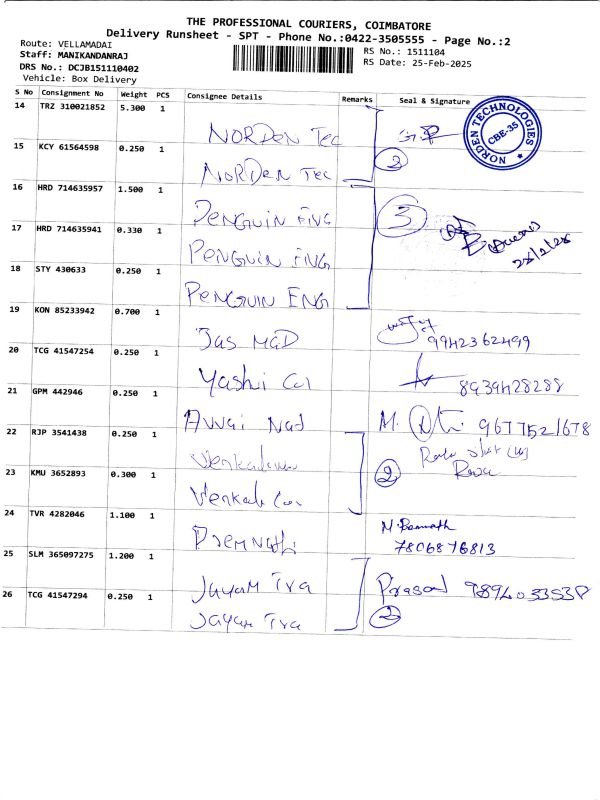 THE PROFESSIONAL COURIERS, COIMBATORE
Delivery Runsheet - SPT - Phone No.:0422-3505555 - Page No.:2
Route: VELLAMADAI
RS No.: 1511104
Staff: MANIKANDANRAJ
RS Date: 25-Feb-2025
DRS No.: DCJB151110402
Vehicle: Box Delivery
S No Consignment No Weight PCS Consignee Details Remarks Seal & Signature
14 TRZ 310021852 5.300 1 NORDEN TEC
NORDEN TECHNOLOGIES CBE-35
15 KCY 61564598 0.250 1 NORDEN TEC 2
16 HRD 714635957 1.500 1 PENGUIN ENG 3
17 HRD 714635941 0.330 1 PENGUIN ENG
18 STY 430633 0.250 1 PENGUIN ENG
19 KON 85233942 0.700 1 Jas MGD 9942362499
20 TCG 41547254 0.250 1 Yashi Car
21 GPM 442946 0.250 1 Avvai Nad M. 9677521678
22 RJP 3541438 0.250 1
23 KMU 3652893 0.300 1 2
24 TVR 4282046 1.100 1 Premnath 7806876813
25 SLM 365097275 1.200 1 Jayam Tra Prasad
26 TCG 41547294 0.250 1 Jayam Tra 2